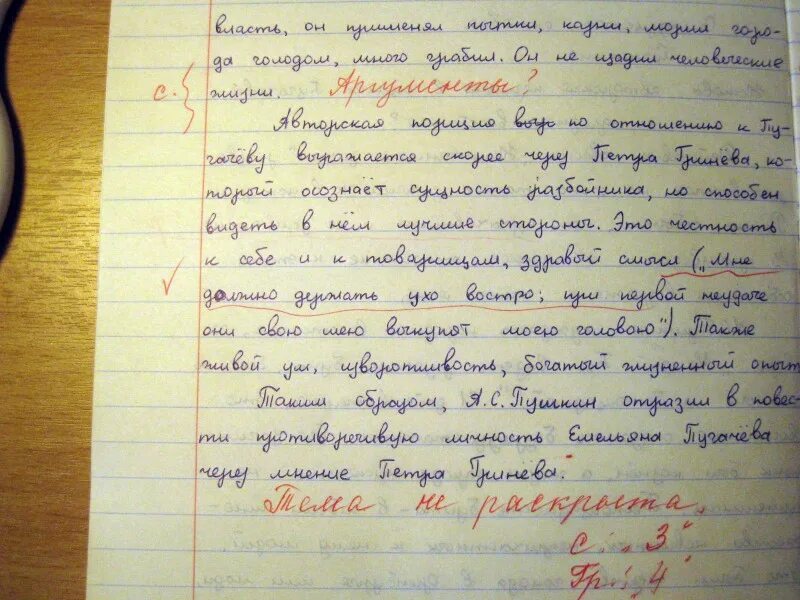 власть, он применял пытки, казни, морил горо-
да голодом, много грабил. Он не щадил человеческие
с. жизни. Аргументы?
Авторская позиция выр по отношению к Пу-
гачёву выражается скорее через Петра Гринёва, ко-
торый осознаёт сущность разбойника, но способен
видеть в нём лучшие стороны. Это честность
к себе и к товарищам, здравый смысл („Мне
должно держать ухо востро; при первой неудаче
они свою шею выкупят моею головою"). Также
живой ум, изворотливость, богатый жизненный опыт
Таким образом, А.С.Пушкин отразил в повес-
ти противоречивую личность Емельяна Пугачёва
через мнение Петра Гринёва.
Тема не раскрыта.
с: „3"
Гр: „4"